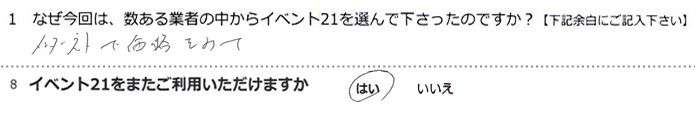 1 なぜ今回は、数ある業者の中からイベント21を選んで下さったのですか？【下記余白にご記入下さい】
で価格をみて
8 イベント21をまたご利用いただけますか はい いいえ